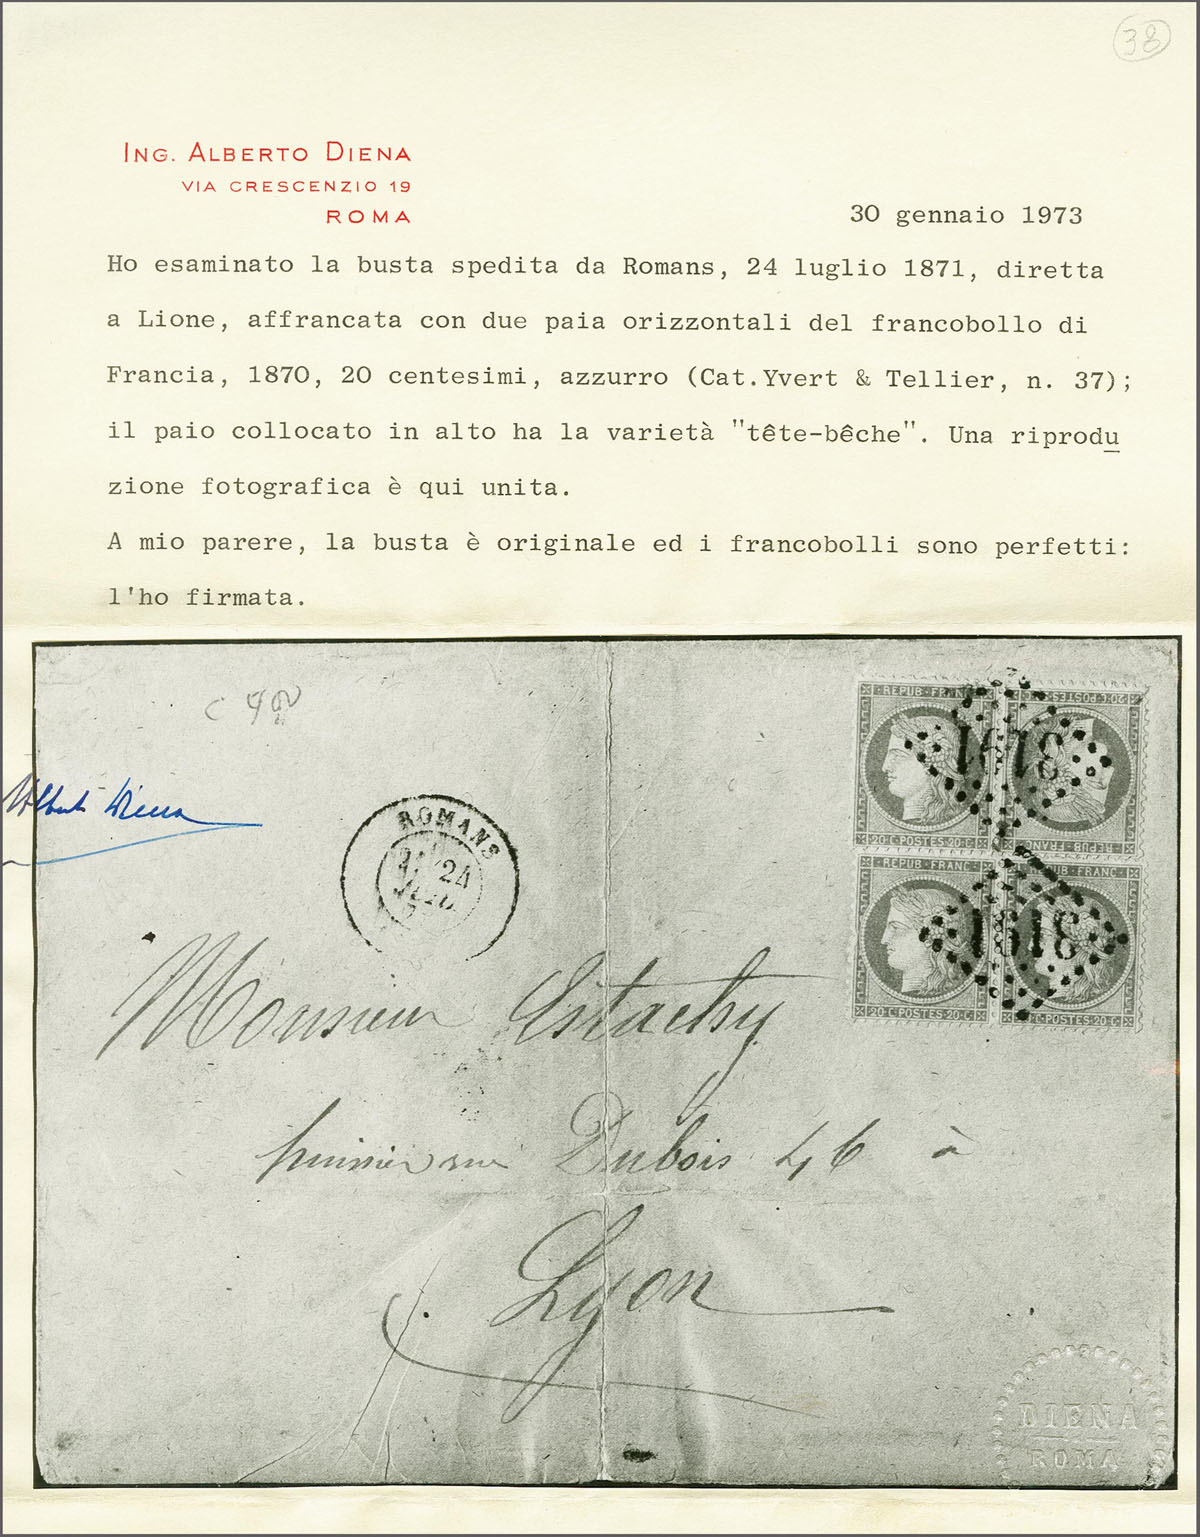 38
ING. ALBERTO DIENA
VIA CRESCENZIO 19
ROMA
30 gennaio 1973
Ho esaminato la busta spedita da Romans, 24 luglio 1871, diretta
a Lione, affrancata con due paia orizzontali del francobollo di
Francia, 1870, 20 centesimi, azzurro (Cat.Yvert & Tellier, n. 37);
il paio collocato in alto ha la varietà "tête-bêche". Una riprodu
zione fotografica è qui unita.
A mio parere, la busta è originale ed i francobolli sono perfetti:
l'ho firmata.
Alberto Diena
ROMANS
24
REPUB FRANC
20·C·POSTES·20·C
20·C·POSTES·20·C
REPUB FRANC
REPUB FRANC
20·C·POSTES·20·C
REPUB FRANC
20·C·POSTES·20·C
Monsieur Estachy
rue Dubois 46 à
Lyon
DIENA
ROMA